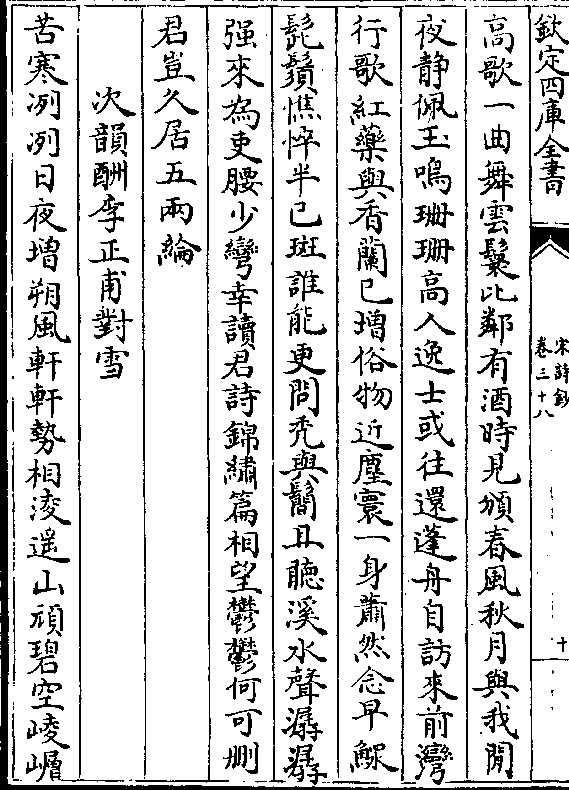 欽定四庫全書
宋詩鈔
卷三十八
十
高歌一曲舞雲鬟比鄰有酒時見頒春風秋月與我閒
夜静佩玉鳴珊珊高人逸士或往還蓬舟自訪来前灣
行歌紅藥與香蘭已增俗物近塵寰一身蕭然念早鰥
髭鬚憔悴半已斑誰能更問秃與鬜且聽溪水聲潺潺
强來為吏腰少彎幸讀君詩錦繡篇相望鬱鬱何可删
君豈久居五兩綸
次韻酬李正甫對雪
苦寒冽冽日夜增朔風軒軒勢相淩遥山頑碧空崚嶒